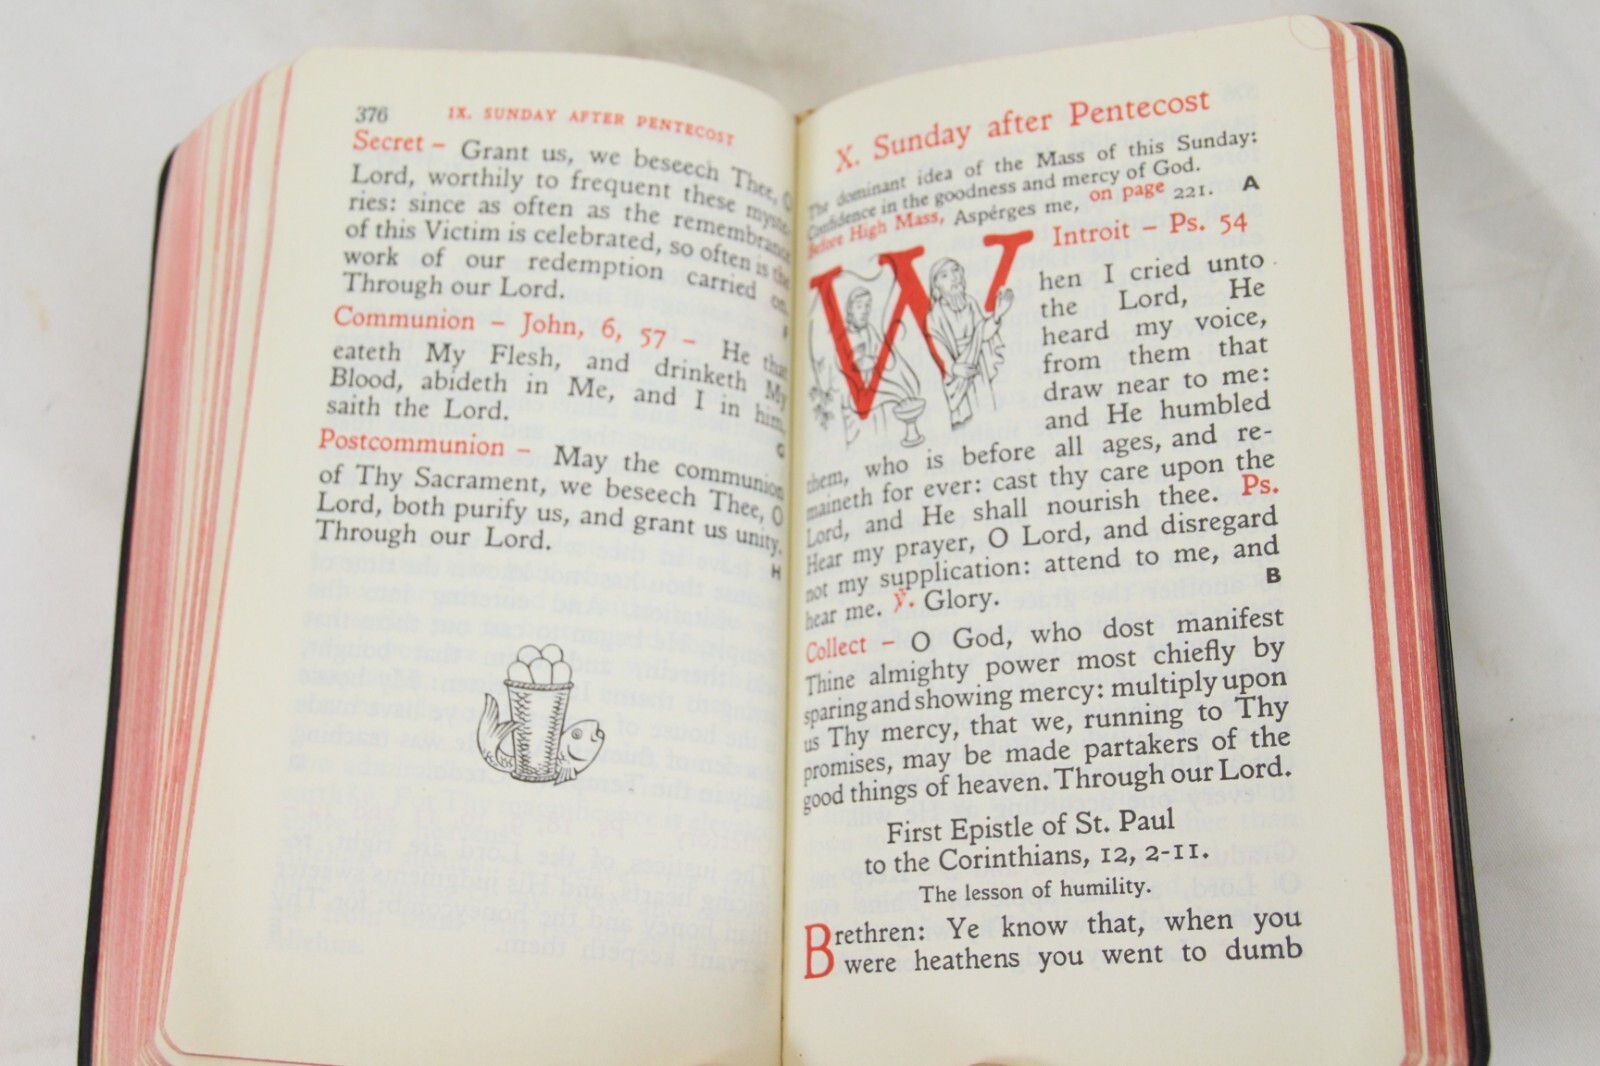 376 IX. SUNDAY AFTER PENTECOST
Secret – Grant us, we beseech Thee, O
Lord, worthily to frequent these myste-
ries: since as often as the remembrance
of this Victim is celebrated, so often is the
work of our redemption carried on.
Through our Lord.
F
Communion – John, 6, 57 – He that
eateth My Flesh, and drinketh My
Blood, abideth in Me, and I in him,
saith the Lord.
G
Postcommunion – May the communion
of Thy Sacrament, we beseech Thee, O
Lord, both purify us, and grant us unity.
Through our Lord.
H
X. Sunday after Pentecost
The dominant idea of the Mass of this Sunday:
Confidence in the goodness and mercy of God.
Before High Mass, Aspérges me, on page 221. A
Introit – Ps. 54
When I cried unto
the Lord, He
heard my voice,
from them that
draw near to me:
and He humbled
them, who is before all ages, and re-
maineth for ever: cast thy care upon the
Lord, and He shall nourish thee. Ps.
Hear my prayer, O Lord, and disregard
not my supplication: attend to me, and
hear me. ℣. Glory. B
Collect – O God, who dost manifest
Thine almighty power most chiefly by
sparing and showing mercy: multiply upon
us Thy mercy, that we, running to Thy
promises, may be made partakers of the
good things of heaven. Through our Lord.
First Epistle of St. Paul
to the Corinthians, 12, 2-11.
The lesson of humility.
Brethren: Ye know that, when you
were heathens you went to dumb